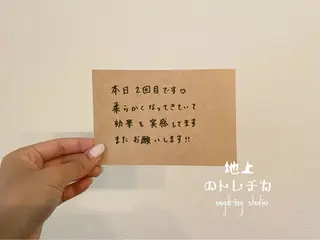 本日2回目です♡
柔らかくなってきていて
効果を実感してます
またお願いします!!
地上
のトレチカ
studio